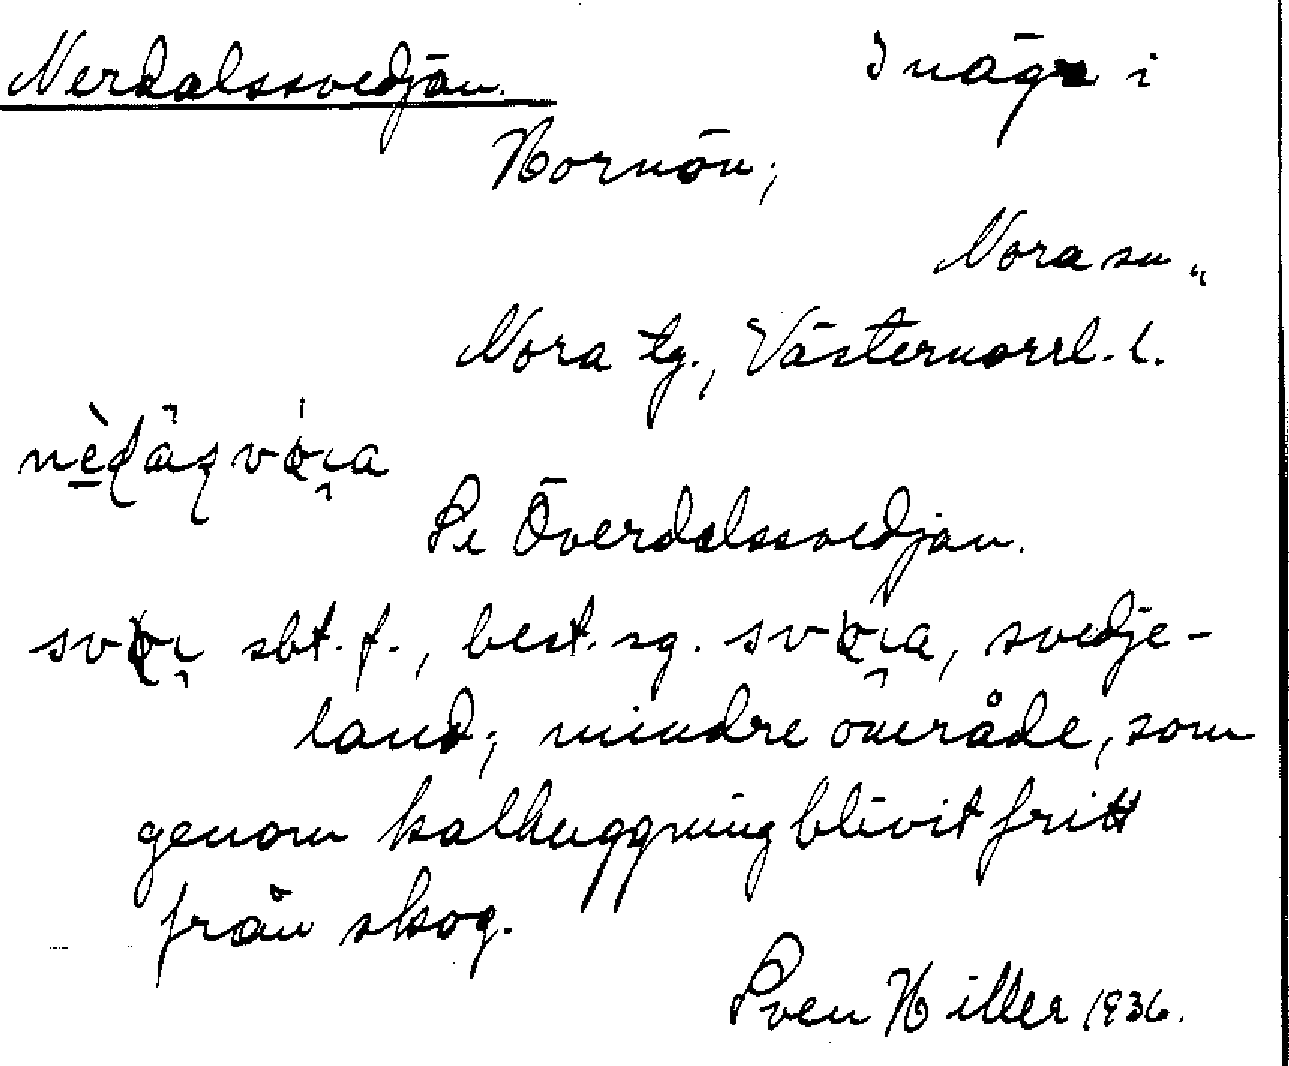 Nerdalssvedjan. Inäga i
Hornön,
Nora sn.,
Nora tg., Västernorrl. l.
Se Överdalssvedjan.
sbt. f., best. sg. svedje-
land; mindre område, som
genom kalhuggning blivit fritt
från skog.
Sven Hiller 1936.